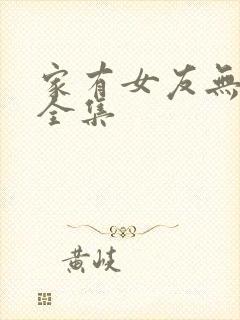 家有女友無
全集
黄岐